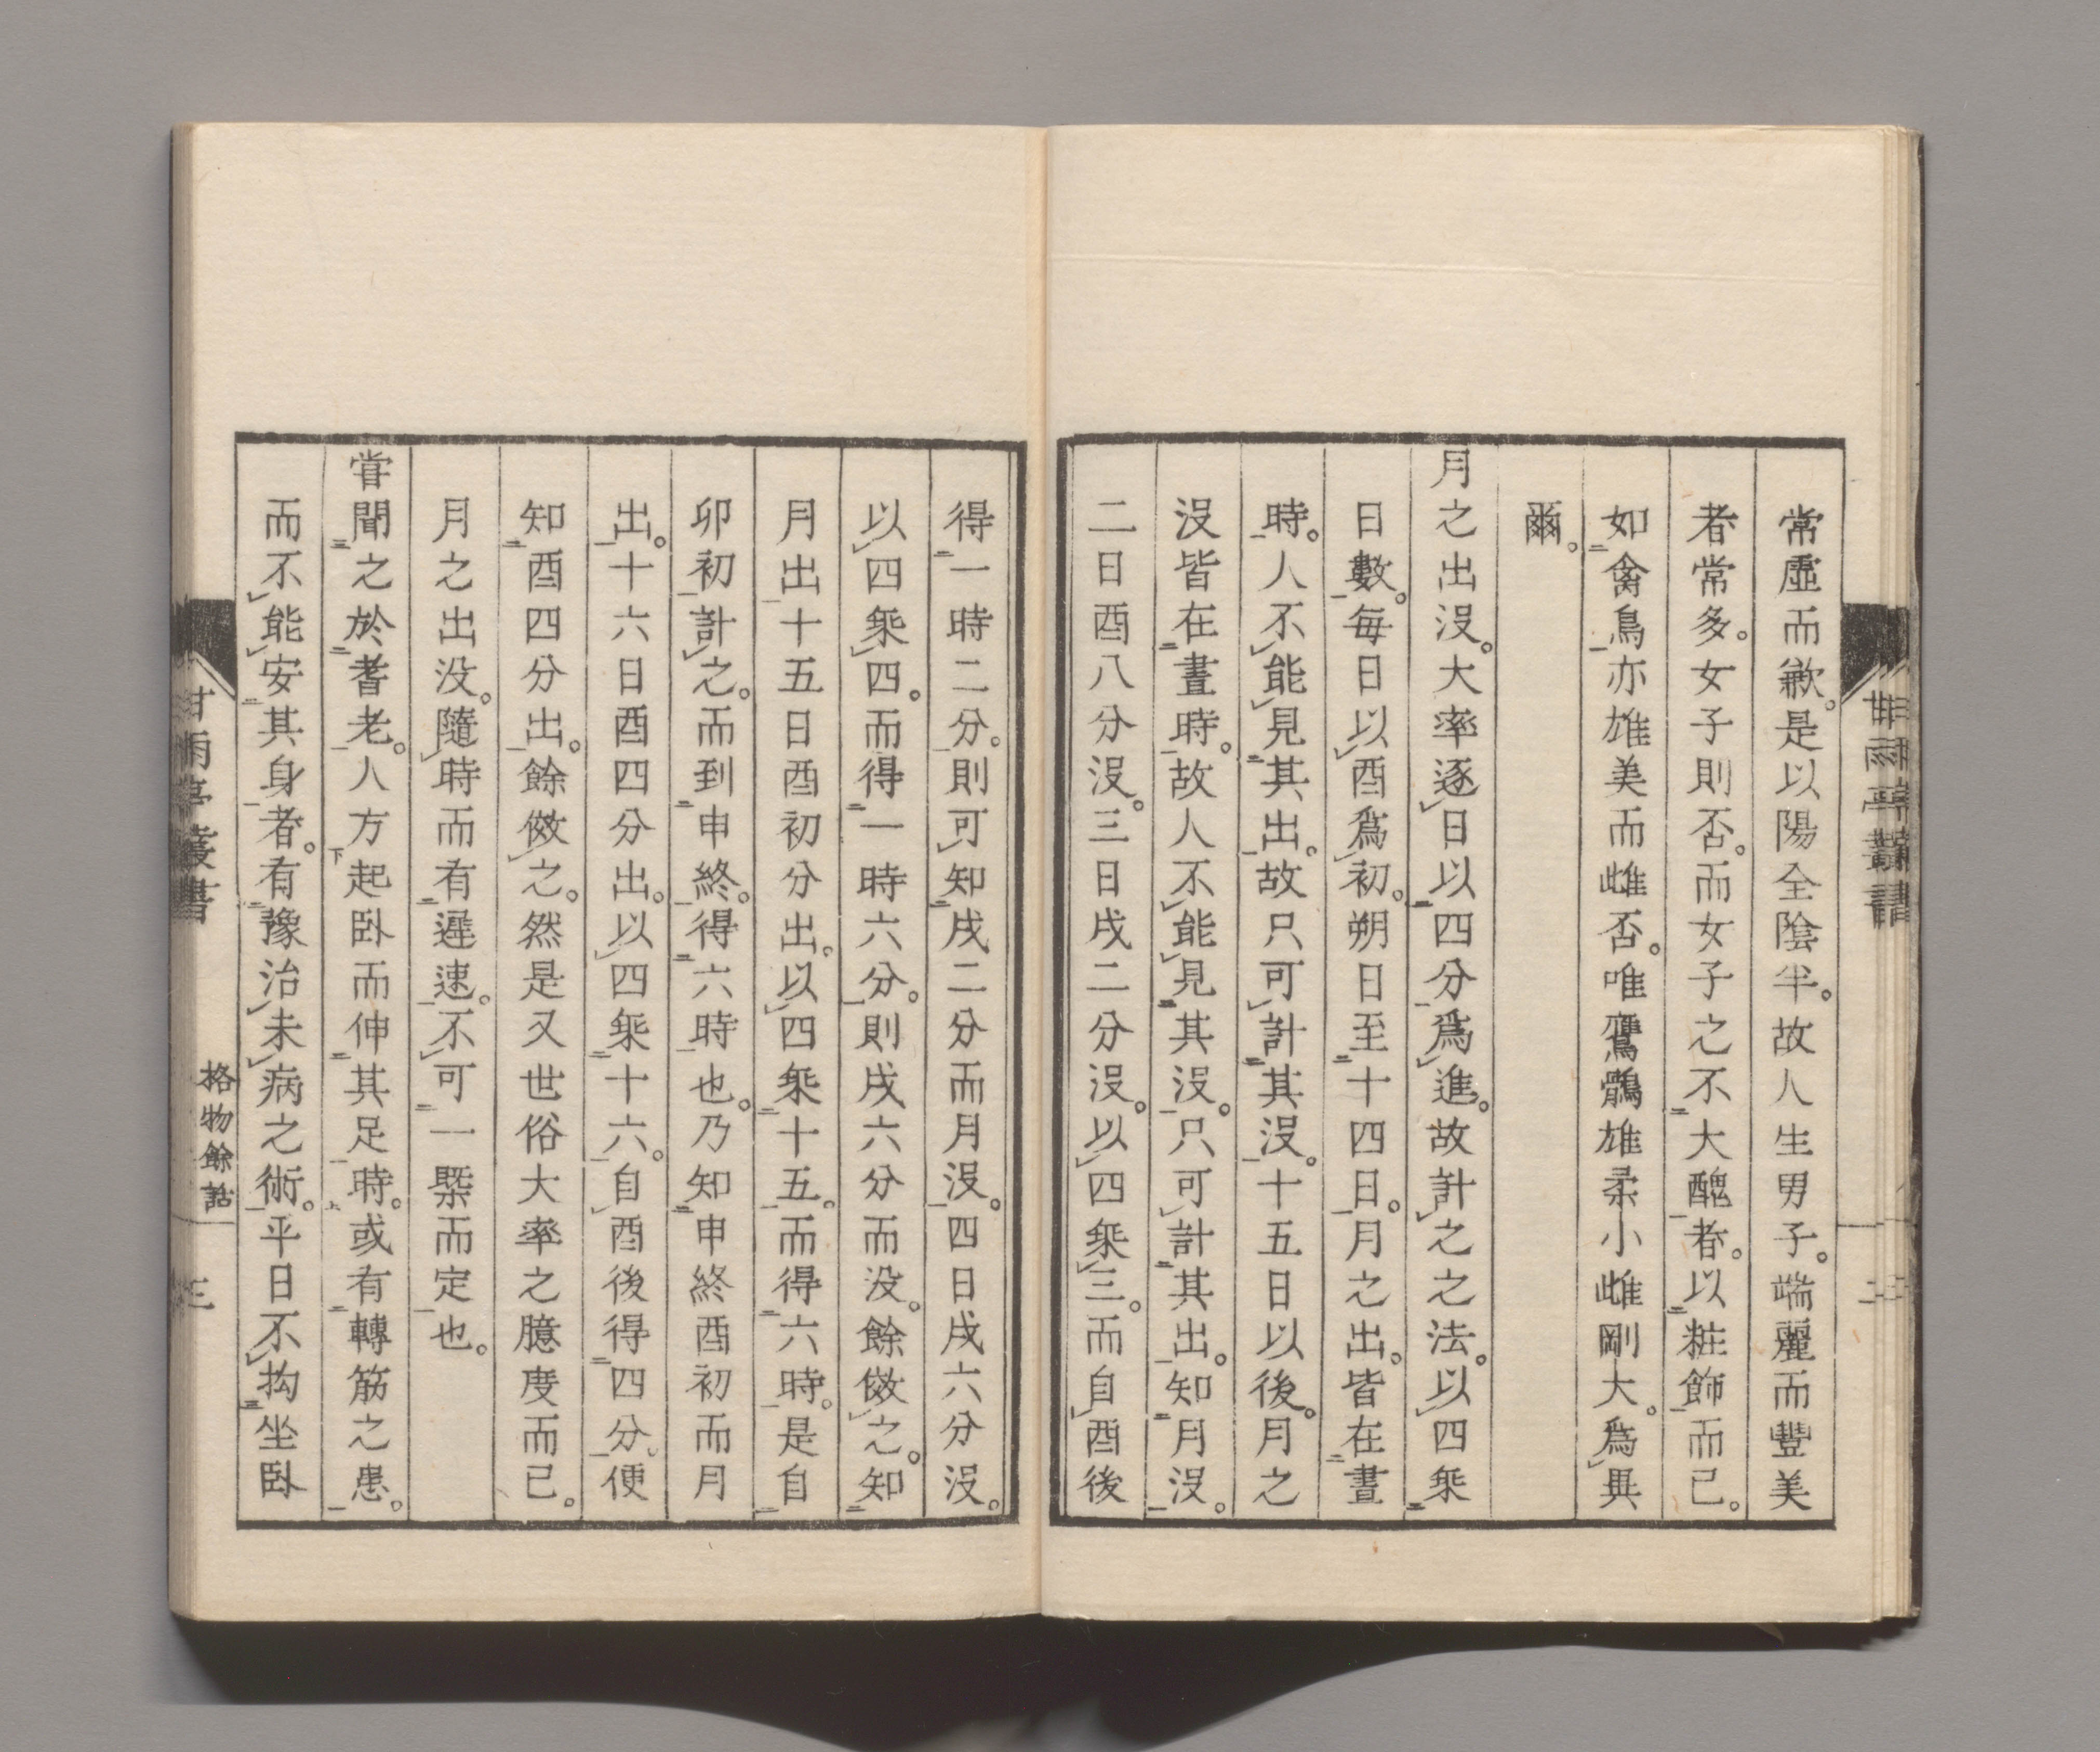 常虛而歉。是以陽全陰半。故人生男子。端麗而豐美
者常多。女子則否。而女子之不大醜者。以粧飾而已。
如禽鳥亦雄美而雌否。唯鷹鶻雄柔小雌剛大。爲異
爾。
月之出沒。大率逐日以四分爲進。故計之之法。以四乘
日數。每日以酉爲初。朔日至十四日。月之出。皆在晝
時。人不能見其出。故只可計其沒。十五日以後。月之
沒皆在晝時。故人不能見其沒。只可計其出。知月沒。
二日酉八分沒。三日戌二分沒。以四乘三。而自酉後
得一時二分。則可知戌二分而月沒。四日戌六分沒。
以四乘四。而得一時六分。則戌六分而没。餘倣之。知
月出十五日酉初分出。以四乘十五。而得六時。是自
卯初計之。而到申終。得六時也。乃知申終酉初而月
出。十六日酉四分出。以四乘十六。自酉後得四分。便
知酉四分出。餘倣之。然是又世俗大率之臆度而已。
月之出没。隨時而有遲速。不可一槩而定也。
甞聞之於耆老。人方起臥而伸其足時。或有轉筋之患。
而不能安其身者。有豫治未病之術。平日不拘坐臥
甘雨亭叢書
格物餘話
三